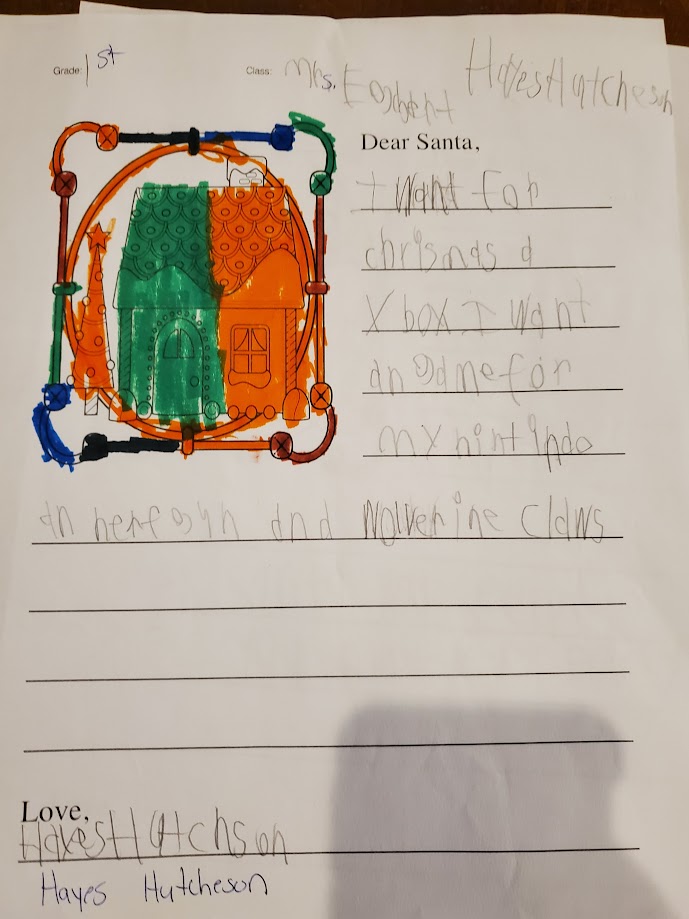 Grade: 1st
Class: Mrs. Eggbert
Hayes Hutcheson
Dear Santa,
I want for
chrismas a
Xbox I want
an game for
my nintindo
an nerf gun and wolverine claws
Love,
Hayes Hutchson
Hayes Hutcheson